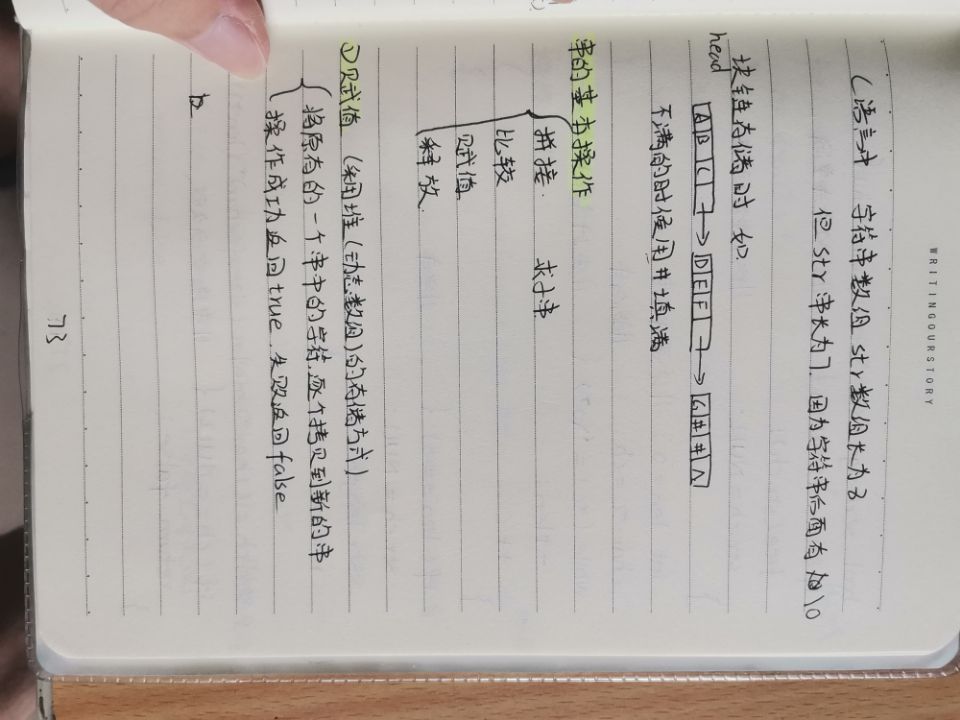 WRITINGOURSTORY
C语言中 字符串数组 str数组长为8
但 str 串长为7. 因为字符串后面有 \0
块链存储时 如
head [A|B|C| ]→[D|E|F| ]→[G|#|#|Λ]
不满的时候使用#填满
串的基本操作
拼接. 求子串
比较
赋值
释放.
①赋值 (采用堆(动态数组)的存储方式)
将原有的一个串中的字符,逐个拷贝到新的串
操作成功返回true. 失败返回false
73